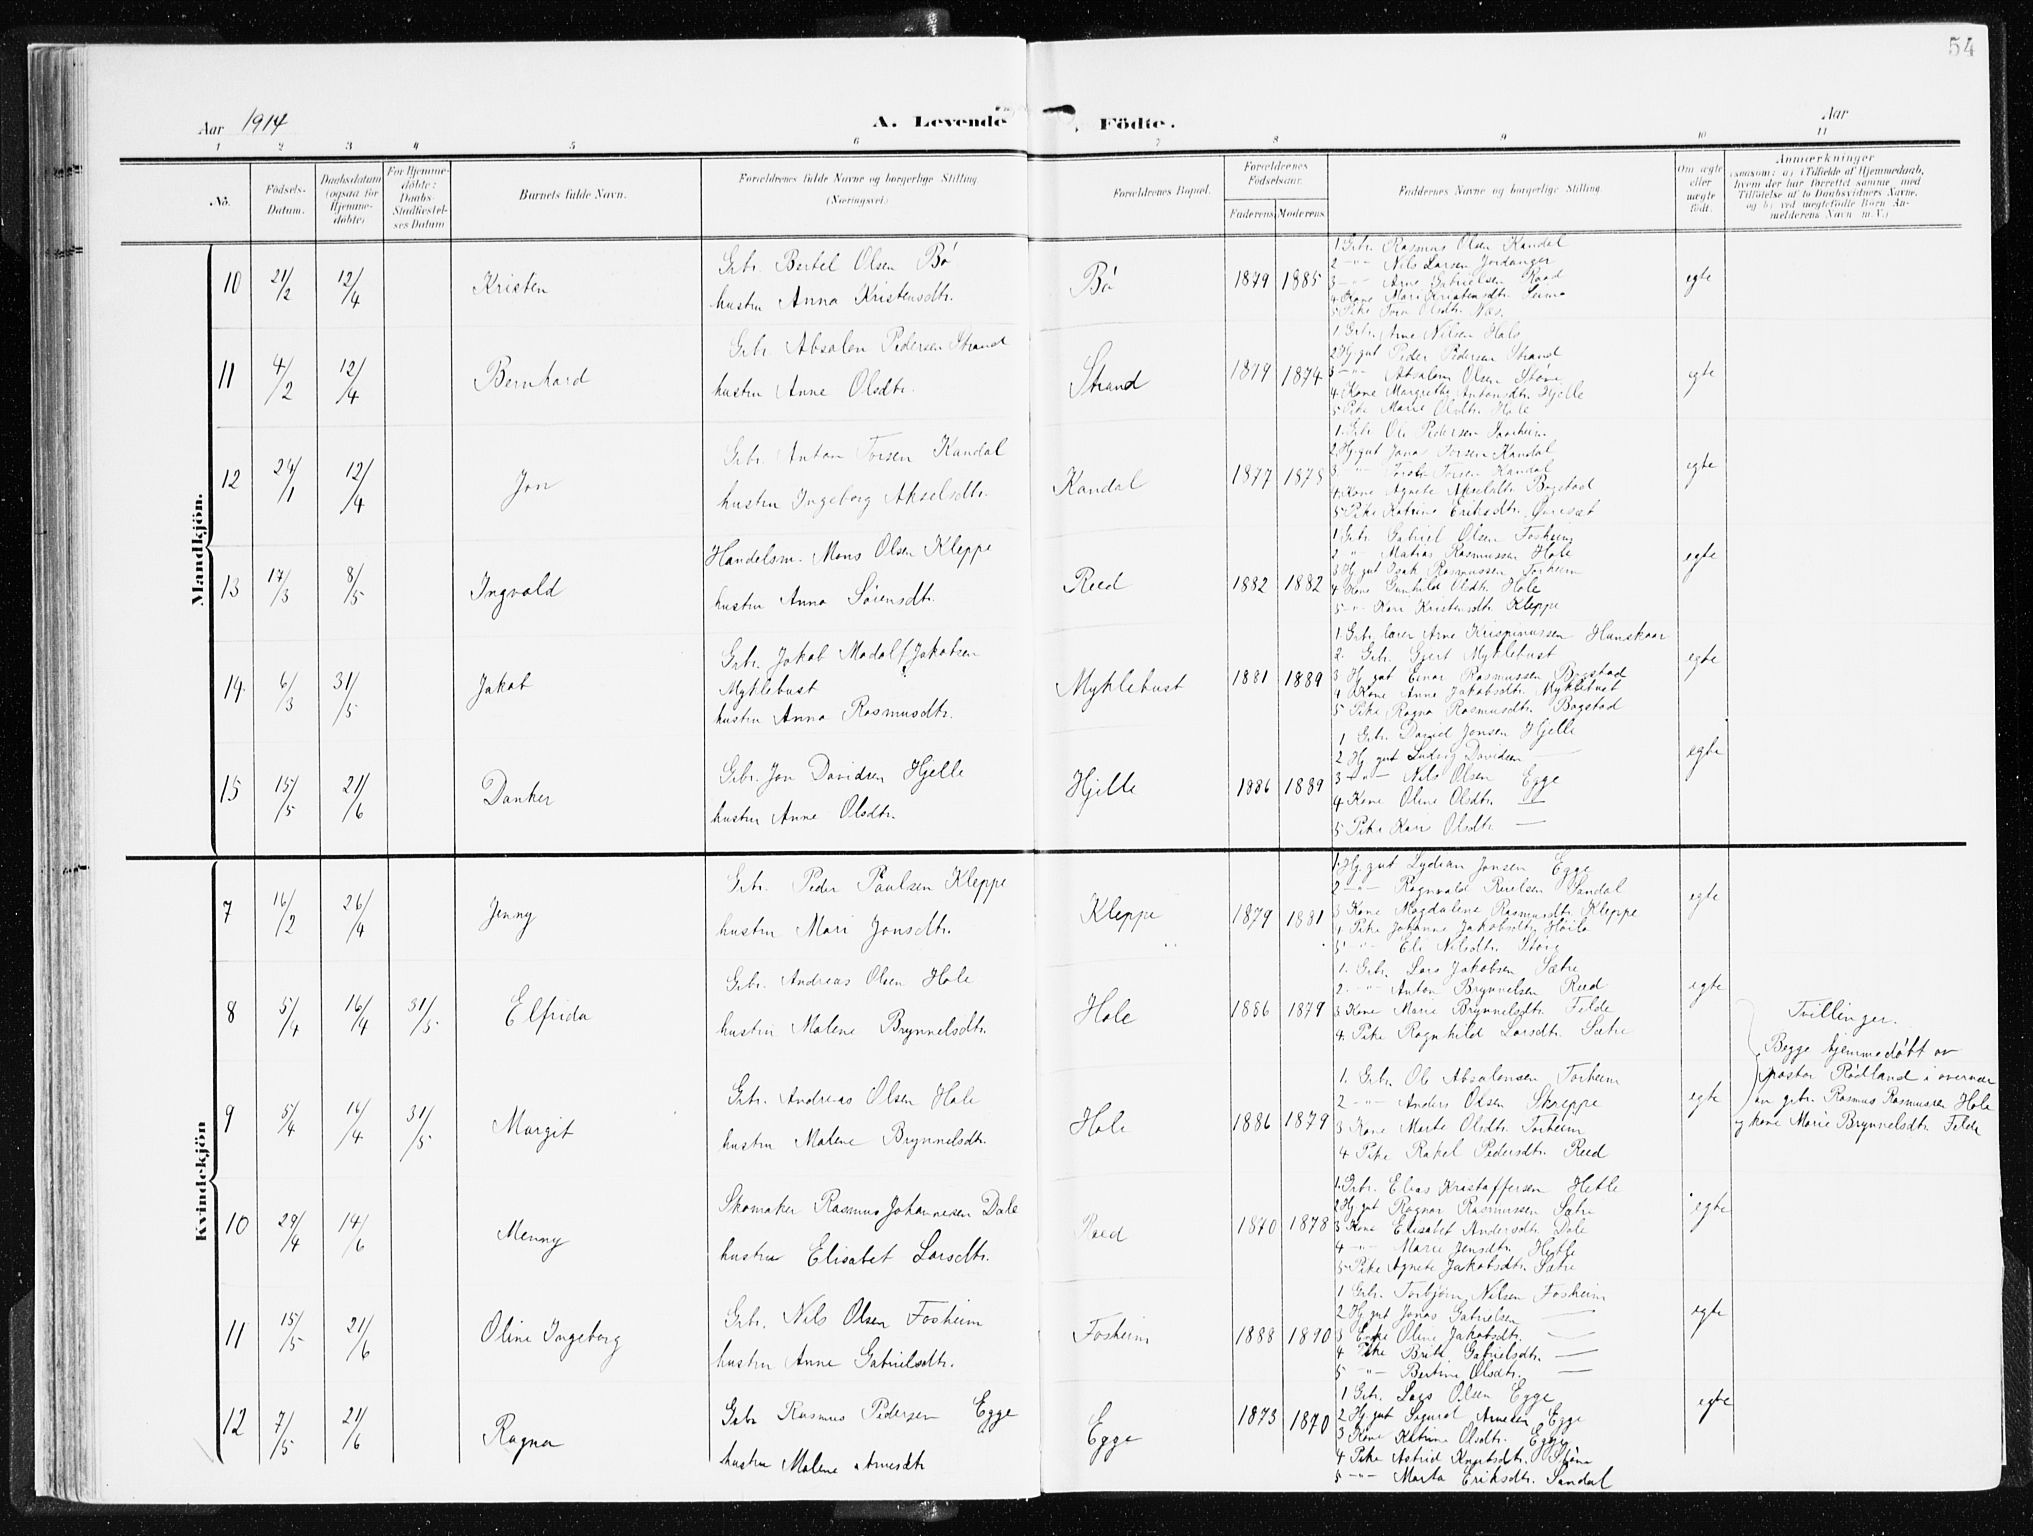 54
Aar 1914
A. Levende Födte.
Aar
1 2 3 4 5 6 7 8 9 10 11
No.
Födsels-Datum.
Daabsdatum (ogsaa for Hjemme-döbte)
For Hjemme-döbte: Daabs-Stadfæstel-ses Datum
Barnets fulde Navn.
Forældrenes fulde Navne og borgerlige Stilling. (Næringsvei.)
Forældrenes Bopæl.
Forældrenes Födselsaar.
Faderens. Moderens.
Faddernes Navne og borgerlige Stilling.
Om ægte eller uægte födt.
Anmærkninger
Mandkjön.
10 21/2 12/4 Kristen
Gbr. Bertel Olsen Bö
hustru Anna Kristensdtr.
Bö 1879 1885
1. Gbr. Rasmus Olsen Kandal
2 -"- Nils Larsen Jordanger
3 -"- Arne Gabrielsen Raad
4. Kone Mari Kristensdtr.
5 Pike Olsdtr. Næs.
egte
11 4/2 12/4 Bernhard
Gbr. Absalon Pedersen Strand
hustru Anne Olsdtr.
Strand 1879 1874
1. Gbr. Arne Nilsen Hole
2 Hj. gut Peder Pedersen Strand
3 -"- Absalom Olsen Støve
4. Kone Margrethe Antonsdtr. Hjelle
5 Pike Marie Olsdtr. Hole
egte
12 29/1 12/4 Jon
Gbr. Anton Torsen Kandal
hustru Ingeborg Akselsdtr.
Kandal 1877 1878
1. Gbr. Ole Pedersen
2. Hj. gut Jona Torsen Kandal
3 " Torsen Kandal
4. Kone Agnete Akselsdtr. Bogstad
5 Pike Katrine Eriksdtr.
egte
13 17/3 8/5 Ingvald
Handelsm. Mons Olsen Kleppe
hustru Anna Sörensdtr.
Reed 1882 1882
1. Gbr. Gabriel Olsen Fosheim
2 " Matias Rasmussen Hole
3 Hj. gut Isak Rasmussen Forheim
4 Kone Gunhild Olsdtr. Hole
5 -"- Kari Kristensdtr. Kleppe
egte
14. 6/3 31/5 Jakob
Gbr. Jakob Madolf Jakobsen
Myklebust
hustru Anna Rasmusdtr.
Myklebust 1881 1889
1. Gbr. lærer Arne Krispinussen Hunskaar
2. Gbr. Gjert Myklebust
3 Hj. gut Einar Rasmussen Bogstad
4 Kone Anne Jakobsdtr. Myklebust
5 Pike Ragna Rasmusdtr. Bogstad
egte
15 15/5 21/6 Danker
Gbr. Jon Davidsen Hjelle
hustru Anne Olsdtr.
Hjelle 1886 1889
1 Gbr. David Jonsen Hjelle
2 Hj. gut Ludvig Davidsen —
3 -"- Nils Olsen Egge
4 Kone Oline Olsdtr. —
5 Pike Kari Olsdtr. —
egte
Kvindekjön
7 16/2 26/4 Jenny
Gbr. Peder Paulsen Kleppe
hustru Mari Jonsdtr.
Kleppe 1879 1881
1. Hj. gut Lydian Jonsen Egge
2 -"- Ragnvald Reielsen Sandal
3 Kone Magdalene Rasmusdtr. Kleppe
4 Pike Johanne Jakobsdtr.
5 " Eli Nilsdtr.
egte
8 5/4 16/4 31/5 Elfrida
Gbr. Andreas Olsen Hole
hustru Malene Brynnelsdtr.
Hole 1886 1879
1. Gbr. Lars Jakobsen Sætre
2. -"- Anton Brynnelsen Reed
3 Kone Marie Brynnelsdtr. Felde
4. Pike Ragnhild Larsdtr. Sætre
egte
Tvillinger.
Begge hjemmedöbt av
pastor Rödland i overvær
av gbr. Rasmus Rasmussen Hole
og kone Marie Brynnelsdtr. Felde
9 5/4 16/4 31/5 Margit
Gbr. Andreas Olsen Hole
hustru Malene Brynnelsdtr.
Hole 1886 1879
1. Gbr. Ole Absalonsen Forheim
2 -"- Anders Olsen Skreppe
3 Kone Marte Olsdtr. Forheim
4 Pike Rakel Pedersdtr. Reed
egte
10 29/4 14/6 Menny
Skomaker Rasmus Johannesen Dale
hustru Elisabet Larsdtr.
Reed 1870 1878
1. Gbr. Elias Kristoffersen Hetle
2 Hj. gut Ragnar Rasmussen Sætre
3 Kone Elisabet Andersdtr. Dale
4 -"- Marie Jensdtr. Hetle
5 Pike Agnete Jakobsdtr. Sætre
egte
11 15/5 21/6 Oline Ingeborg
Gbr. Nils Olsen Fosheim
hustru Anne Gabrielsdtr.
Fosheim 1888 1890
1 Gbr. Torbjörn Nilsen Fosheim
2 Hj. gut Jonas Gabrielsen —
3 Enke Oline Jakobsdtr. —
4 Pike Brite Gabrielsdtr. —
5 -"- Bertine Olsdtr. —
egte
12 7/5 21/6 Ragna
Gbr Rasmus Pedersen Egge
hustru Malene Arnesdtr
Egge 1873 1870
1 Gbr. Lars Olsen Egge
2 Hj. gut Sigurd Arnesen Egge
3 Kone Katrine Olsdtr. Egge
4 Pike Astrid Knutsdtr.
5 -"- Marta Eriksdtr. Sandal
egte